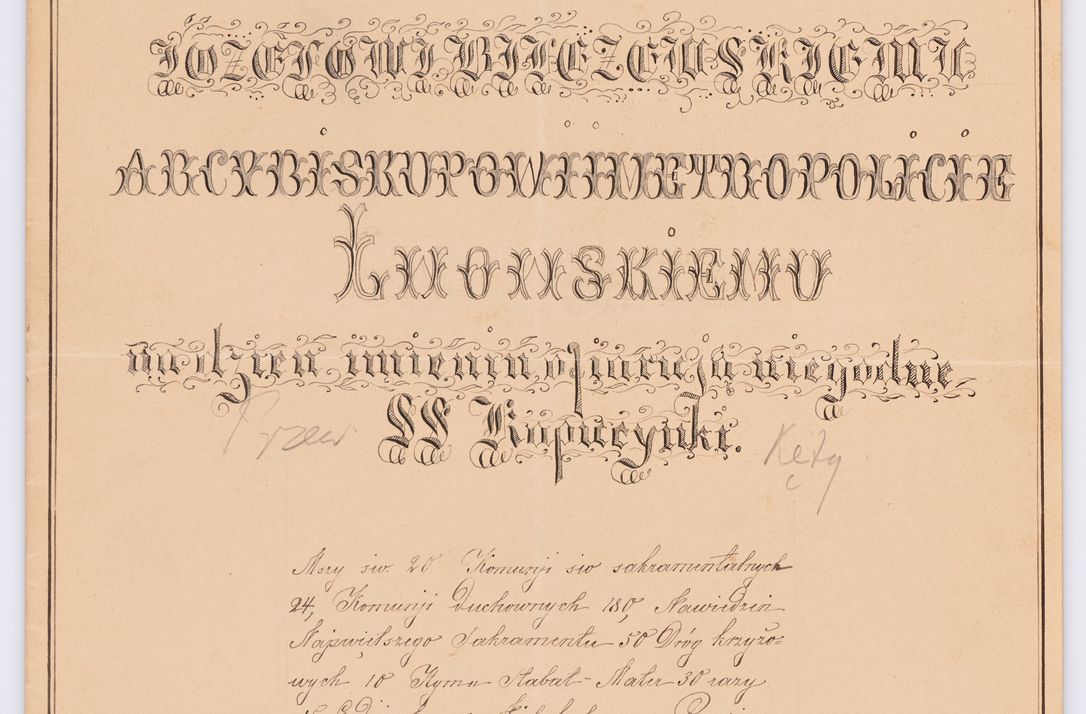 JÓZEFOWI BILCZEWSKIEMU
ARCYBISKUPOWI METROPOLICIE
LWOWSKIEMU
na dzień imienin ofiarują niegodne
SS Kapucynki.
Przew
Kęty
Mszy św. 20 Komunji św sakramentalnych
24, Komunji Duchownych 180, Nawiedzeń
Najświętszego Sakramentu 50 Dróg krzyżo=
wych 10 Hymn Stabat-Mater 30 razy